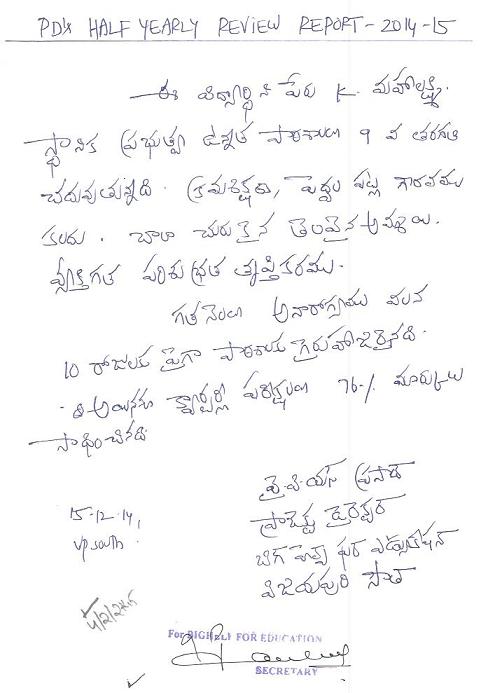 PD's HALF YEARLY REVIEW REPORT - 2014-15
ఈ విద్యార్థిని పేరు K. మహాలక్ష్మి.
స్థానిక ప్రభుత్వ ఉన్నత పాఠశాలలో 9 వ తరగతి
చదువుతున్నది. క్రమశిక్షణ, పెద్దల పట్ల గౌరవము
కలదు. చాలా చురుకైన తెలివైన అమ్మాయి.
వ్యక్తిగత పరిశుభ్రత తృప్తికరము.
గత నెలలో అనారోగ్యము వలన
10 రోజులకు పైగా పాఠశాలకు గైరుహాజరైనది.
అయినను క్వార్టర్లీ పరీక్షలలో 76% మార్కులు
సాధించినది.
వై.వి.యస్ ప్రసాద్
ప్రాజెక్టు డైరెక్టర్
బిగ్ హెల్ప్ ఫర్ ఎడ్యుకేషన్
విజయపురి సౌత్
15-12-14,
VP South.
4/2/2015
For BIGHELP FOR EDUCATION
SECRETARY